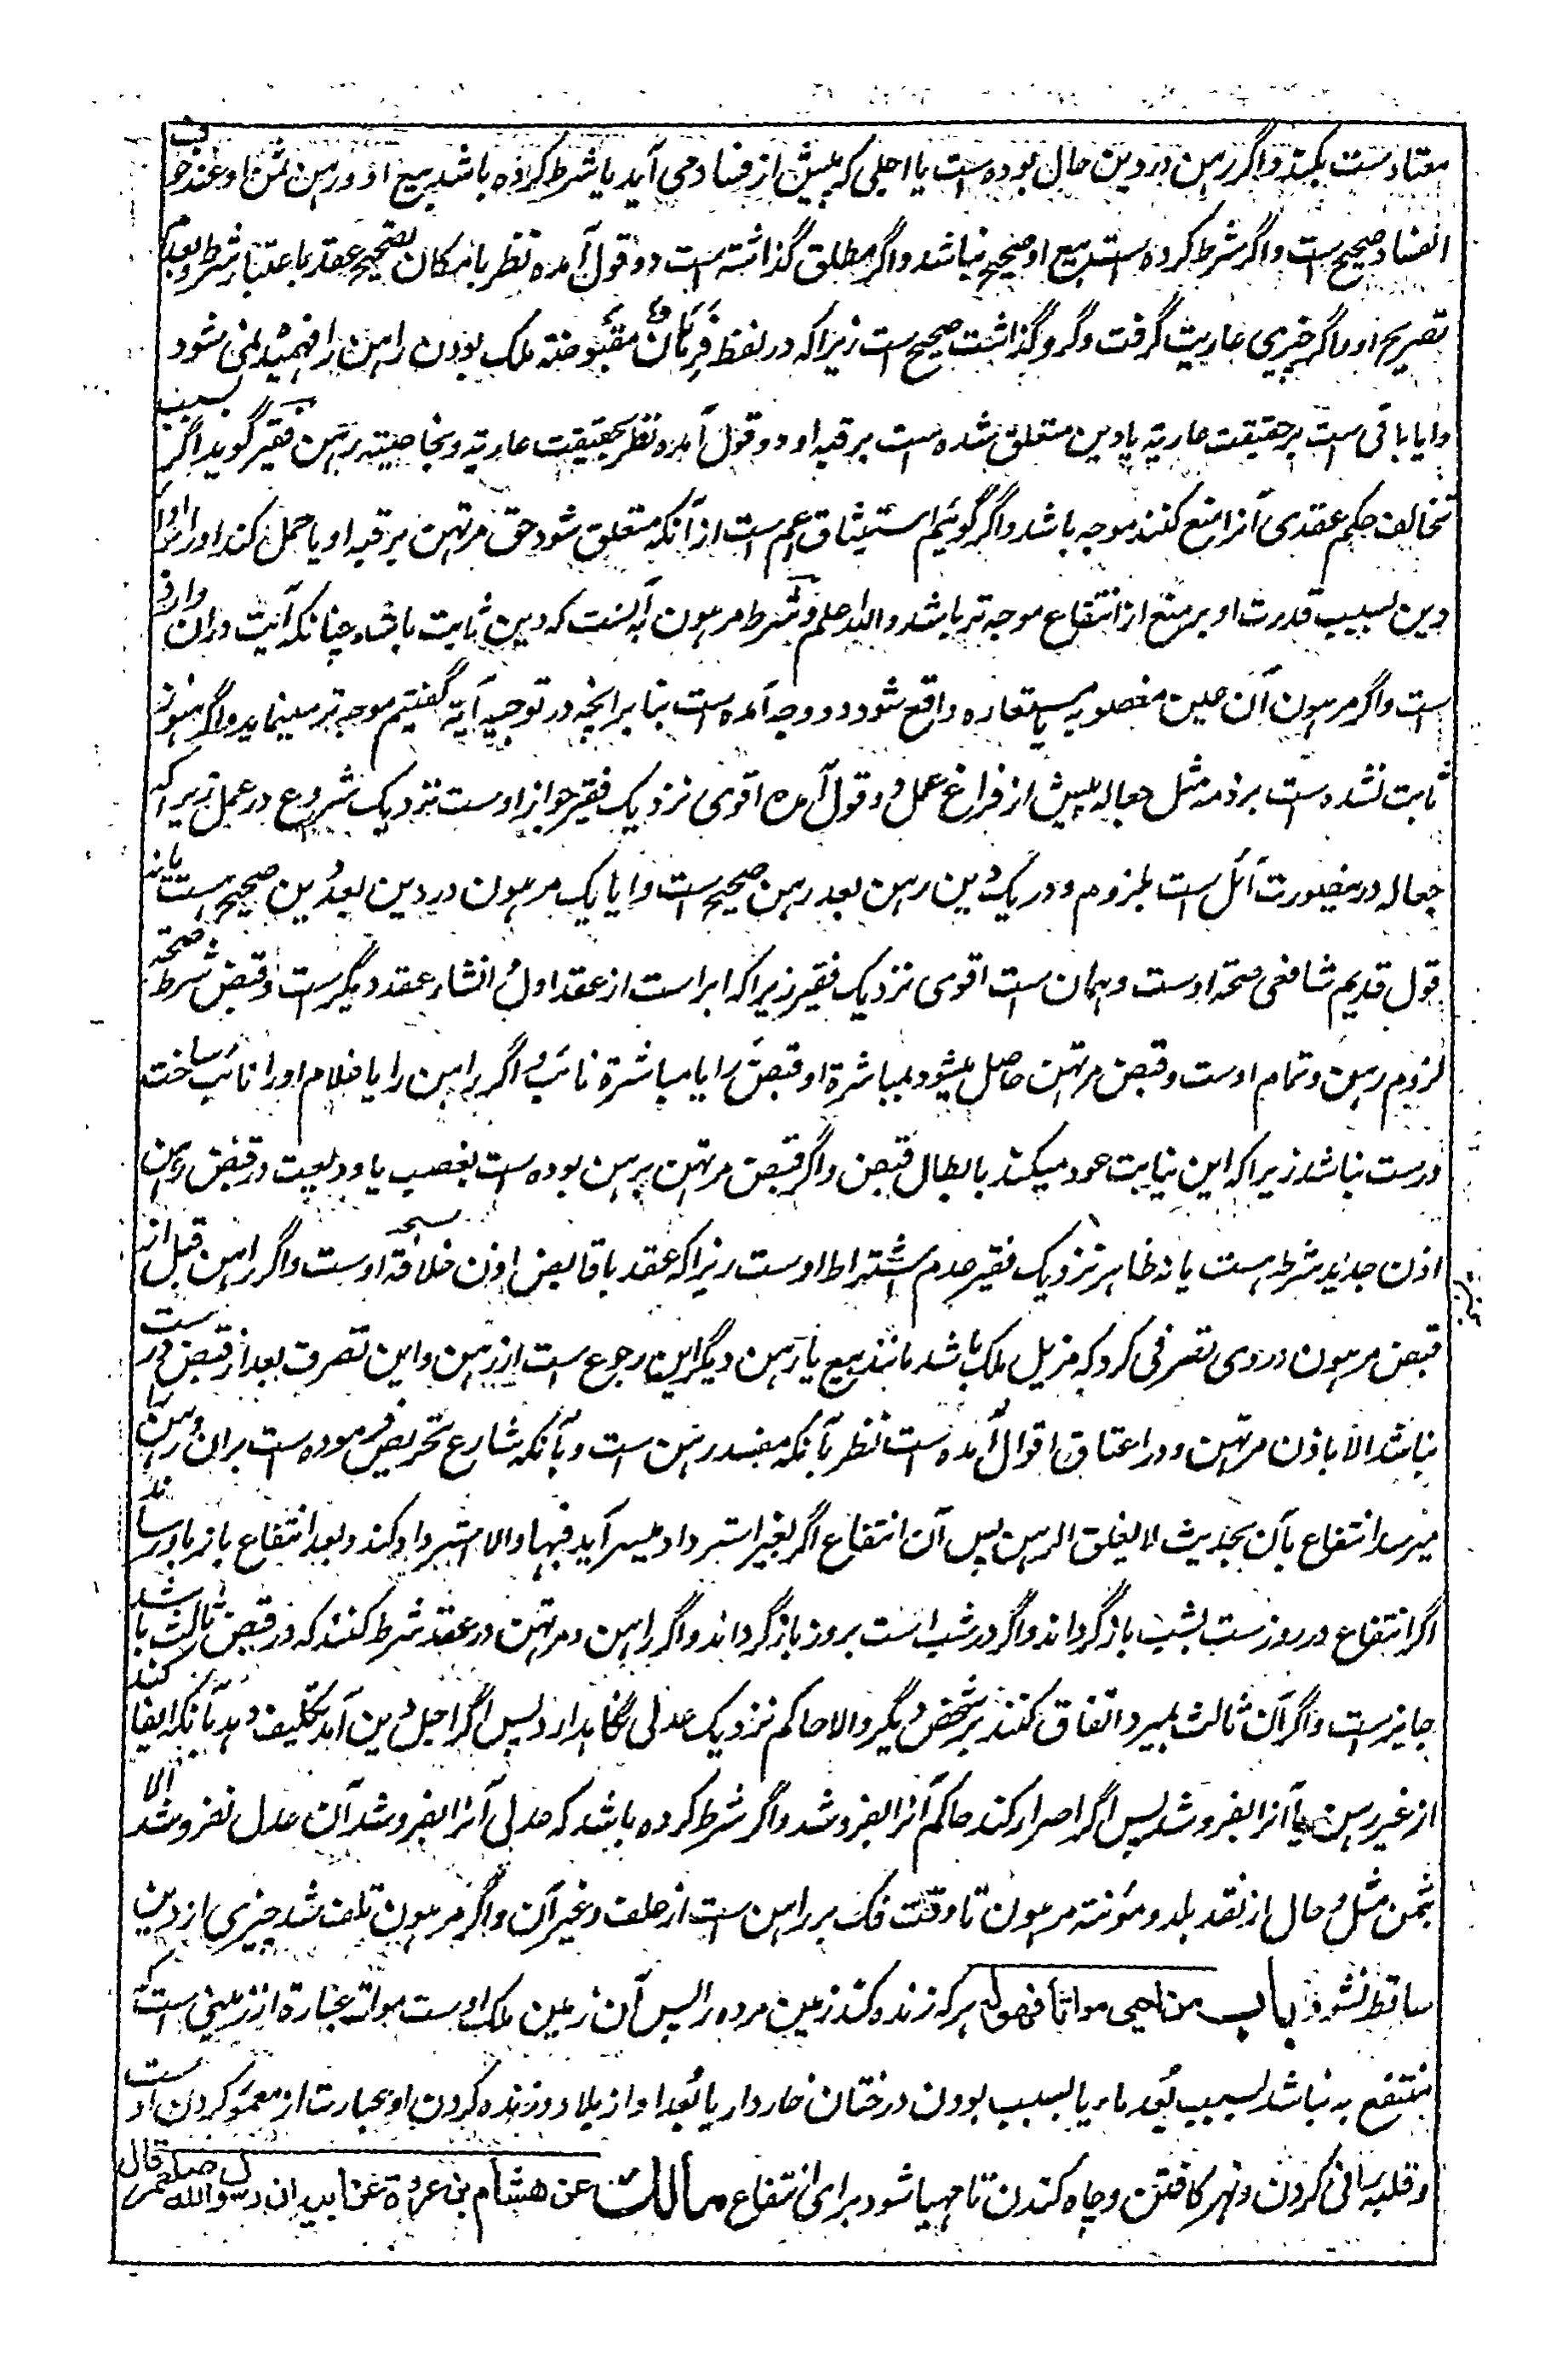 معتادست بکند و اگر رهن در دین حال بوده است یا اجلی که پیش از فساد می آید یا شرط کرده باشد بیع او و رهن ثمن او عند خوف
الفساد صحیح است و اگر شرط کرده است بیع او صحیح نباشد و اگر مطلق گذاشته است دو قول آمده نظر بامکان تصحیح عقد باعتبار شرط و بعدم
تصریح او و اگر چیزی عاریت گرفت و گرو گذاشت صحیح است زیرا که در لفظ فَرِهَانٌ مَقْبُوضَة ملک بودن راهن را فهمیده نمی شود
و ایا باقی است بر حقیقت عاریة یا دین متعلق شده است برقبه او دو قول آمده نظر بحقیقت عاریة و بخاصیته رهن فقیر گوید اگر بسبب
تخالف حکم عقدی آنرا منع کنند موجه باشد و اگر گوئیم استیثاق اعم است از آنکه متعلق شود حق مرتهن برقبه او یا حمل کند او را بر ادای
دین بسبب قدرت او بر منع از انتفاع موجه تر باشد والله اعلم و شرط مرهون به آنست که دین ثابت باشد چنانکه آیت در آن وارد
ست و اگر مرهون آن عین مغصوبه یا مستعاره واقع شود دو وجه آمده است بنا بر آنچه در توجیه آیة گفتیم موجه تر مینماید و اگر هنوز
ثابت نشده است بر ذمه مثل جعاله پیش از فراغ عمل دو قول آمده اقوی نزدیک فقیر جواز اوست نزدیک شروع در عمل زیرا که
جعاله درینصورت آئل است بلزوم و در یک دین رهن بعد رهن صحیح است و ایا یک مرهون در دین بعد دین صحیح است یا نه
قول قدیم شافعی صحة اوست و همان است اقوی نزدیک فقیر زیرا که ابراست از عقد اول و انشاء عقد دیگرست و قبض شرط صحة
لزوم رهن و تمام اوست و قبض مرتهن حاصل میشود بمباشرة او قبض را یا مباشرة نائب و اگر راهن را یا غلام او را نائب ساخت
درست نباشد زیرا که این نیابت عود میکند بابطال قبض و اگر قبض مرتهن بر رهن بوده است بغصب یا ودیعت در قبض رهن
اذن جدید شرط هست یا نه ظاهر نزدیک فقیر عدم اشتراط اوست زیرا که عقد با قابض اذن خلافة اوست و اگر راهن قبل از
قبض مرهون در وی تصرفی کرد که مزیل ملک باشد مانند بیع یا رهن دیگر این رجوع است از رهن و این تصرف بعد از قبض درست
نباشد الا باذن مرتهن و در اعتاق اقوال آمده است نظر بآنکه مفسد رهن ست و بآنکه شارع تحریض فرموده ست بر آن و راهن را
میرسد انتفاع بآن بحدیث لا یغلق الرهن پس آن انتفاع اگر بغیر استرداد میسر آید فبها و الا استرداد کند و بعد انتفاع باز باو رساند
اگر انتفاع در روزست بشب باز گرداند و اگر در شب است بروز باز گرداند و اگر راهن و مرتهن در عقد شرط کنند که در قبض ثالث باشد
جایزست و اگر آن ثالث بمیرد اتفاق کنند بر شخص دیگر و الا حاکم نزدیک عدلی نگاهدارد پس اگر اجل دین آمد تکلیف دهد تا آنکه ایفا کند
از غیر رهن یا آنرا بفروشد پس اگر اصرار کند حاکم آنرا بفروشد و اگر شرط کرده باشد که عدلی آنرا بفروشد آن عدل نفروشد الا
بثمن مثل و حال از نقد بلد و مؤنته مرهون تا وقت فک بر راهن ست از علف و غیر آن و اگر مرهون تلف شد چیزی از دین
ساقط نشود باب من احیی مواتا فهو له هر که زنده کند زمین مرده را پس آن زمین ملک اوست موات عبارة از زمینی است که
منتفع به نباشد بسبب بُعد ماء یا بسبب بودن درختان خاردار یا بُعد او از بلاد و زنده کردن او عبارت از معمور کردن اوست
و قلبه رانی کردن و نهر کافتن و چاه کندن تا مهیا شود برای انتفاع مالك عن هشام بن عروة عن ابیه ان رسول الله صلعم قال